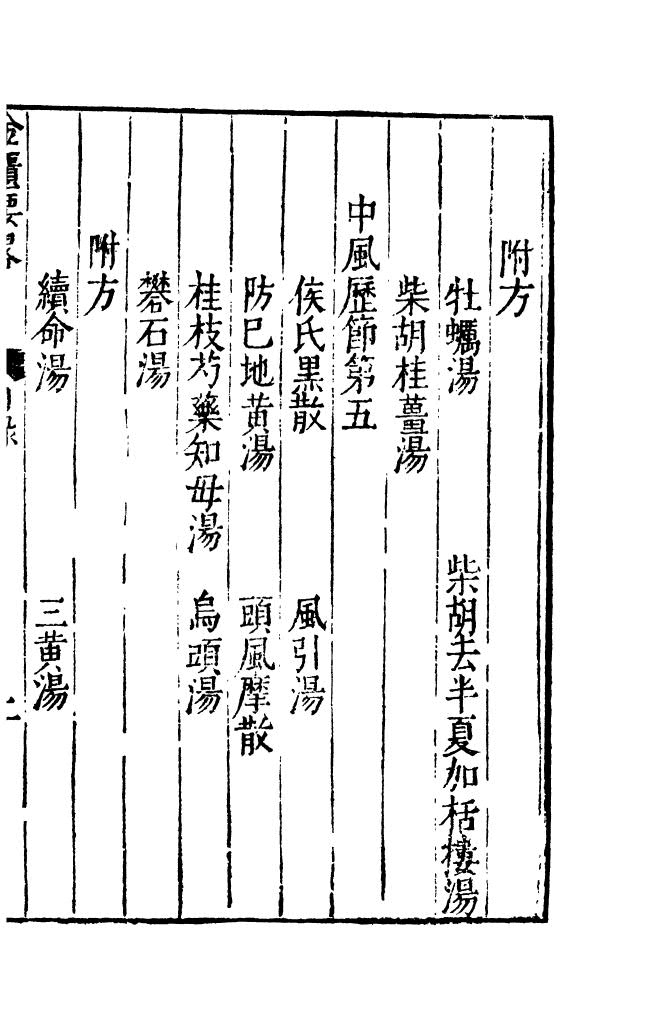 附方
牡蠣湯　柴胡去半夏加栝樓湯
柴胡桂薑湯
中風歷節第五
侯氏黑散　風引湯
防已地黃湯　頭風摩散
桂枝芍藥知母湯　烏頭湯
礬石湯
附方
續命湯　三黃湯